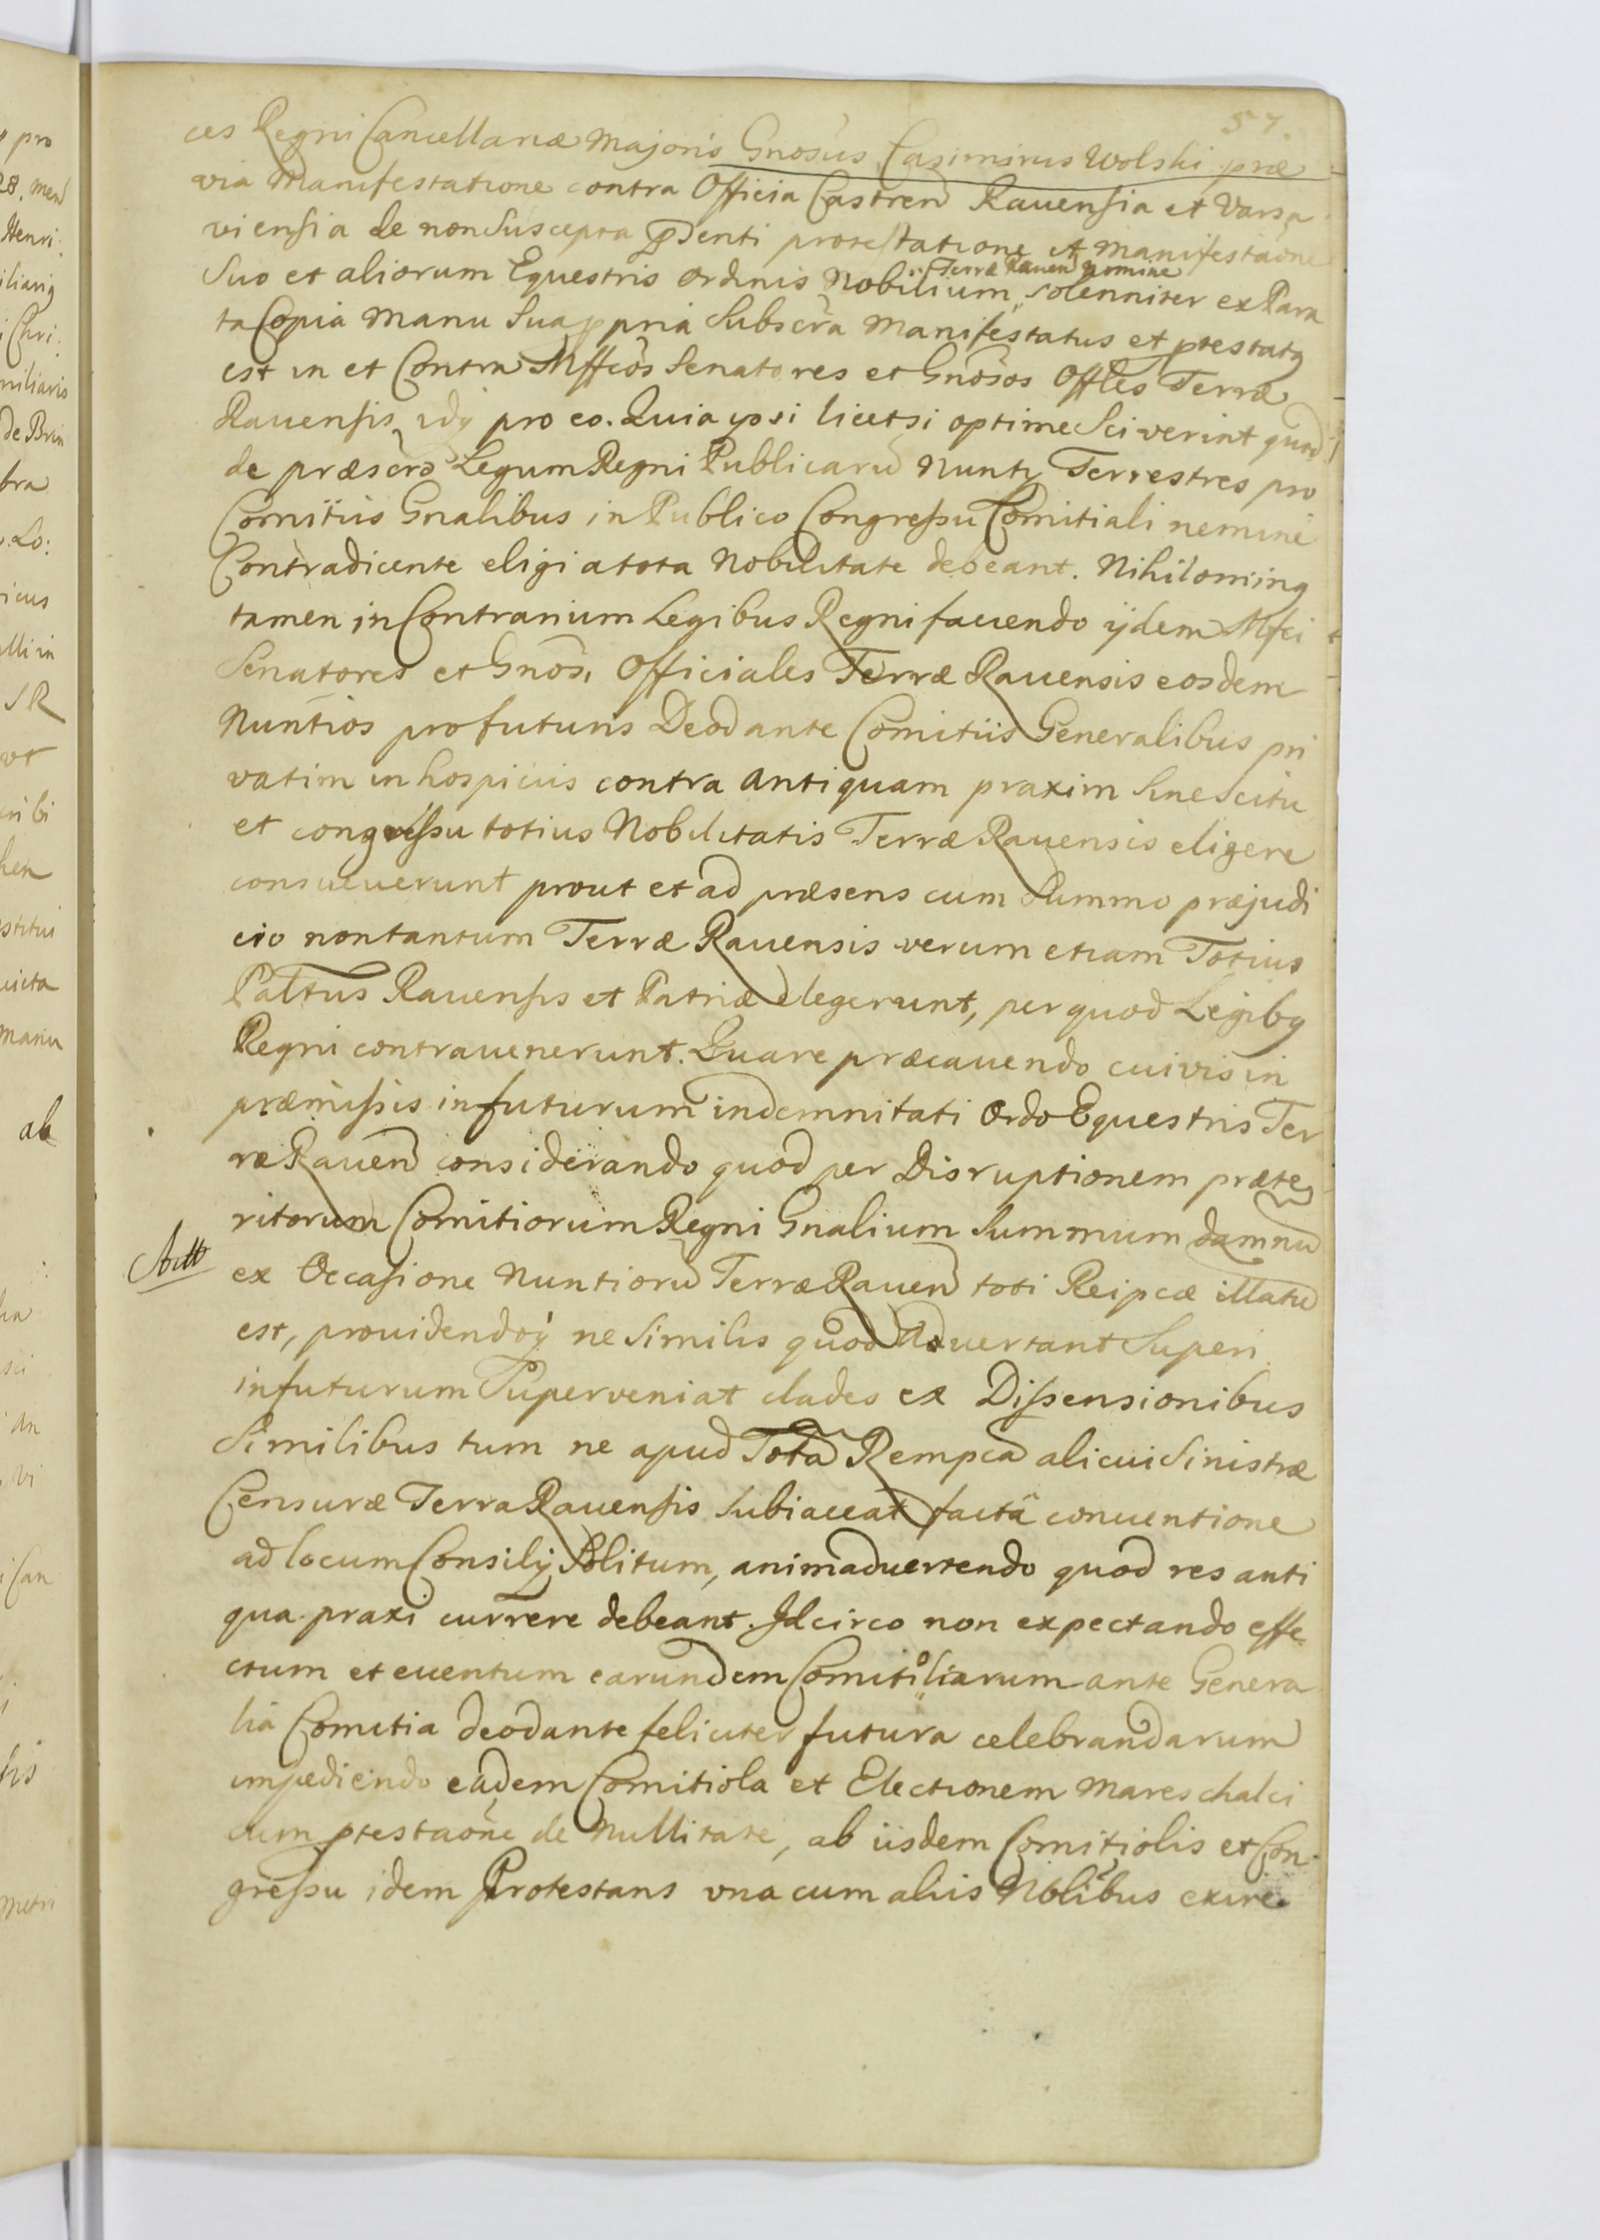 57.
ces Regni Cancellariæ Majoris Gnosus Casimirus Wolski præ
via Manifestatione contra Officia Castren Rauensia et Varsa
viensia de non suscepta pnti protestatione et manifestaone
Suo et aliorum Equestris Ordinis Nobilium Terræ Rauen nomine solenniter ex Para
ta Copia manu sua ppria Subscra Manifestatus et ptestatq
est in et Contra Mffcos Senatores et Gnosos Offles Terræ
Rauensis idq pro eo. Quia ipsi licet optime Sciverint quod
de præscro Legum Regni Publicaru Nuntij Terrestres pro
Comitiis Gnalibus in Publico Congressu Comitiali nemine
Contradicente eligi a tota Nobilitate debeant. Nihilominq
tamen in Contrarium Legibus Regni faciendo ijdem Mfci
Senatores et Gnosi Officiales Terræ Rauensis eosdem
Nuntios pro futuris Deo dante Comitiis Generalibus pri
vatim in hospiciis contra antiquam praxim sine scitu
et congressu totius Nobilitatis Terræ Rauensis eligere
consueuerunt prout et ad præsens cum Summo præjudi
cio non tantum Terræ Rauensis verum etiam Totius
Paltus Rauensis et Patriæ elegerunt, per quod Legibq
Regni contrauenerunt. Quare præcauendo cuivis in
præmissis in futurum indemnitati Ordo Equestris Ter
ræ Rauen considerando quod per Disruptionem præte
ritorum Comitiorum Regni Gnalium Summum damnu
ex Occasione Nuntioru Terræ Rauen toti Reipcæ illatu
est, prouidendoq ne similis quod Aduertant Superi
in futurum Superveniat clades ex Dissensionibus
Similibus tum ne apud Tota Rempca alicui Sinistræ
Censuræ Terra Rauensis Subiaceat facta conuentione
ad locum Consilij Solitum, animaduertendo quod res anti
qua praxi currere debeant. Idcirco non expectando effe
ctum et euentum earundem Comitioliarum ante Genera
lia Comitia deo dante feliciter futura celebrandarum
impediendo eadem Comitiola et Electionem Mareschalci
cum ptestaone de Nullitate, ab iisdem Comitiolis et Con
gressu idem Protestans vna cum aliis Nblibus exire